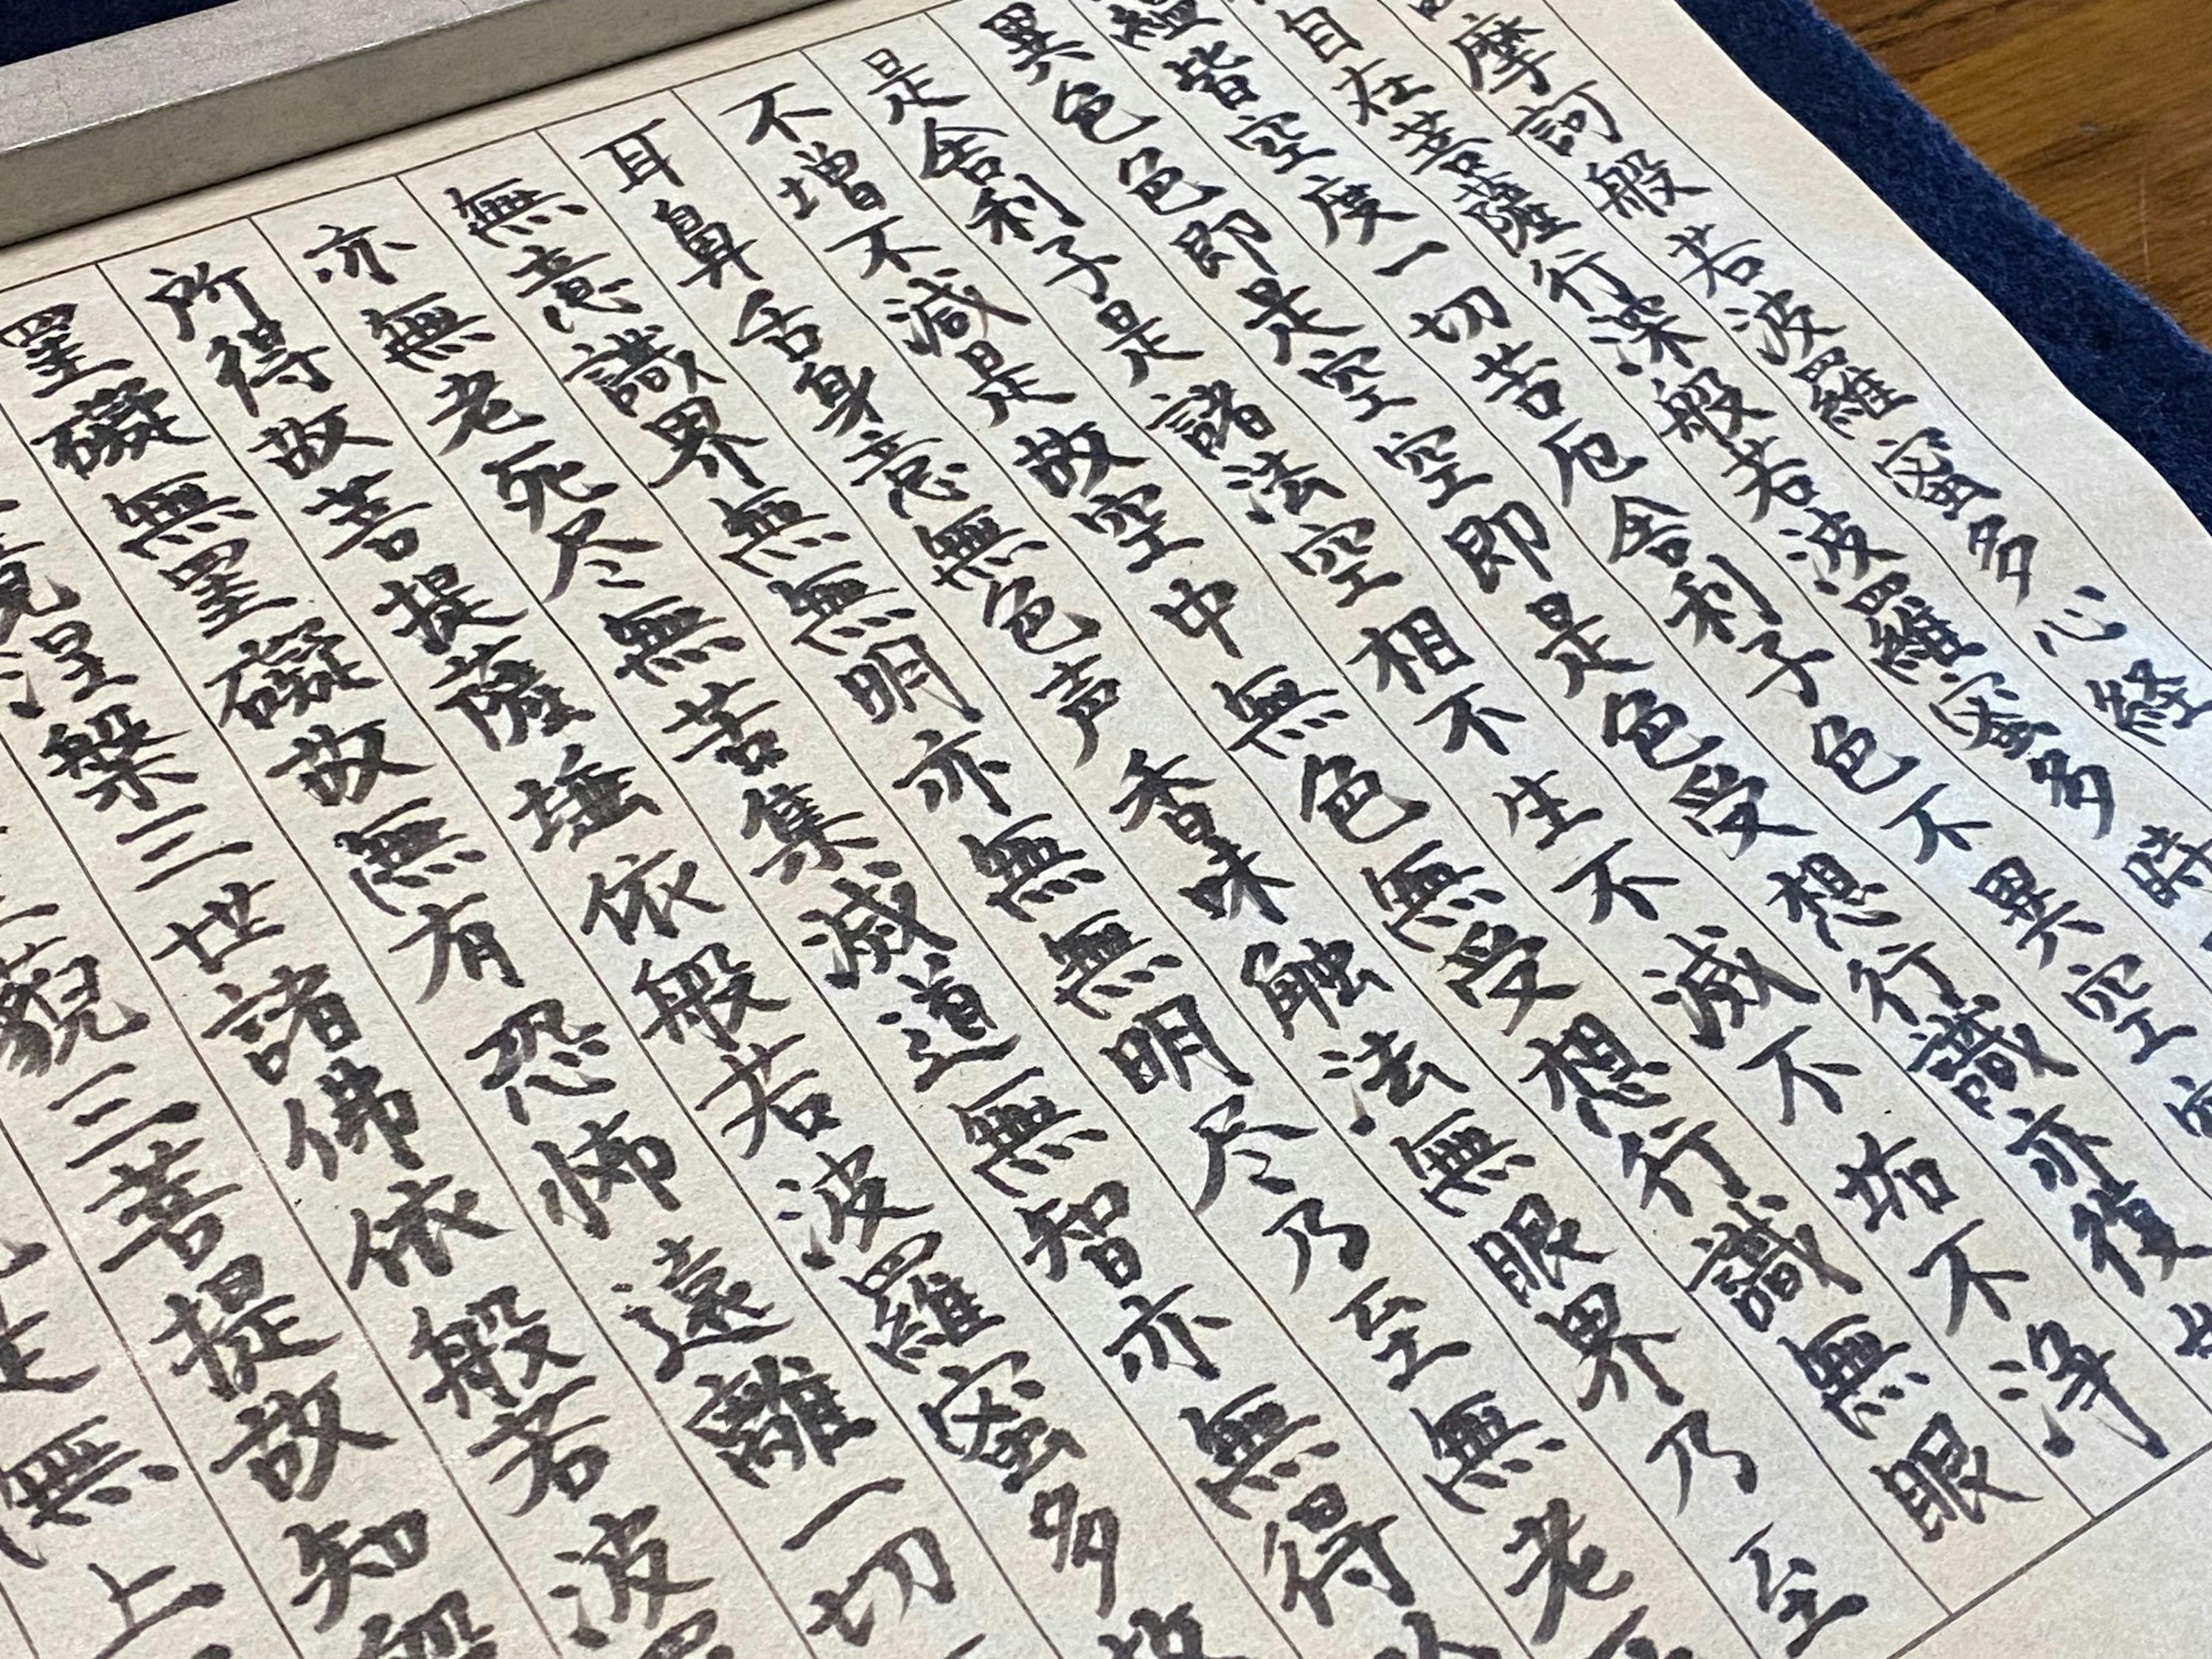 摩訶般若波羅蜜多心経
自在菩薩行深般若波羅蜜多時
蘊皆空度一切苦厄舎利子色不異空空
異色色即是空空即是色受想行識亦復
是舎利子是諸法空相不生不滅不垢不浄
不増不減是故空中無色無受想行識無眼
耳鼻舌身意無色声香味触法無眼界乃至
無意識界無無明亦無無明尽乃至無老
亦無老死尽無苦集滅道無智亦無得
所得故菩提薩埵依般若波羅蜜多故
罣礙無罣礙故無有恐怖遠離一切
涅槃三世諸佛依般若波
藐三菩提故知般
是無上